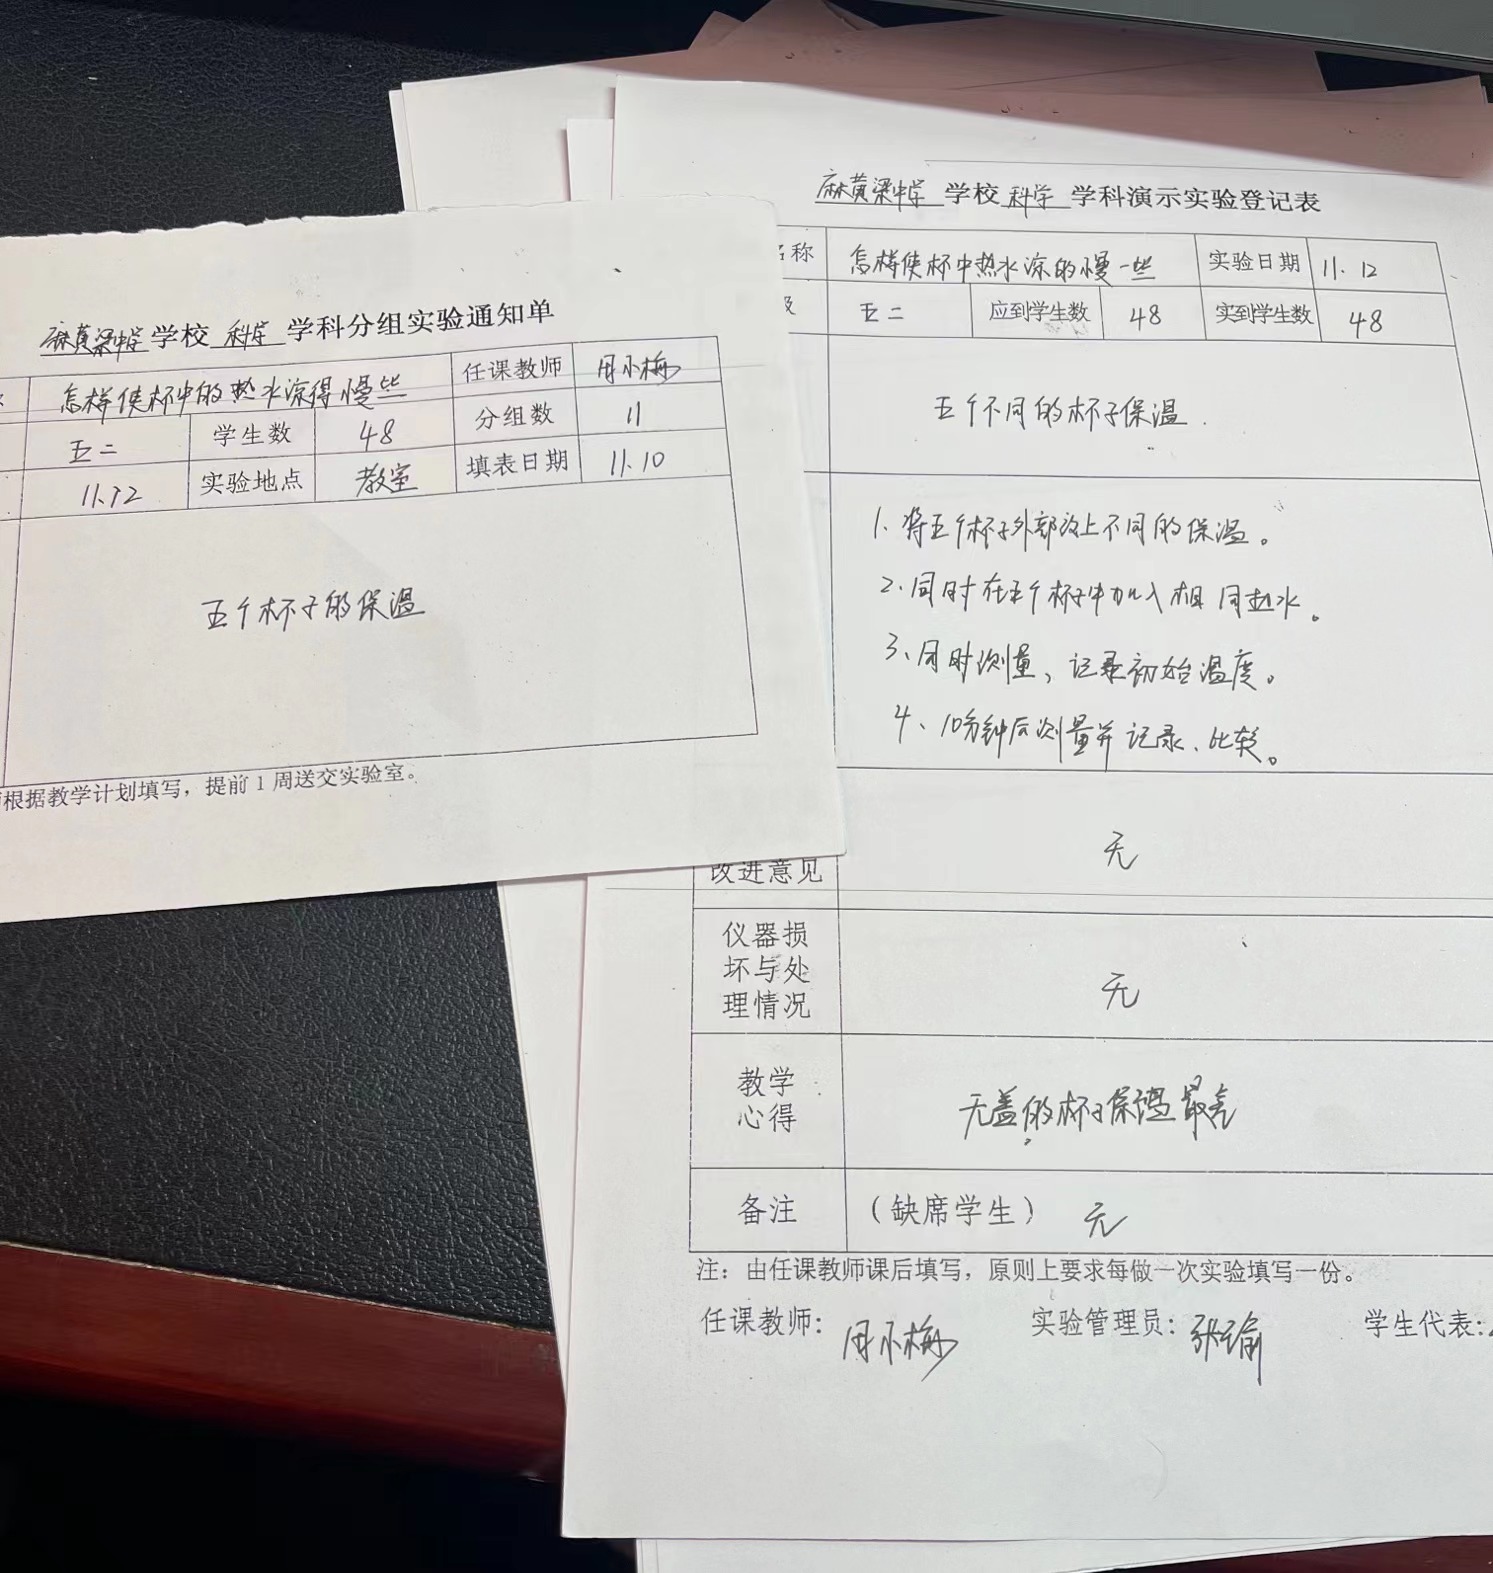 麻黄梁中学学校 科学 学科分组实验通知单
怎样使杯中的热水凉得慢些 任课教师 周小梅
五二 学生数 48 分组数 11
11.12 实验地点 教室 填表日期 11.10
五个杯子的保温
根据教学计划填写，提前1周送交实验室。
麻黄梁中学学校 科学 学科演示实验登记表
名称 怎样使杯中热水凉的慢一些 实验日期 11.12
级 五二 应到学生数 48 实到学生数 48
五个不同的杯子保温.
1.将五个杯子外部放上不同的保温。
2.同时在五个杯子中加入相同热水。
3、同时测量，记录初始温度。
4、10分钟后测量并记录、比较。
改进意见 无
仪器损
坏与处
理情况
无
教学
心得
无盖的杯子保温最差
备注 （缺席学生） 无
注：由任课教师课后填写，原则上要求每做一次实验填写一份。
任课教师：周小梅 实验管理员：张瑜 学生代表：